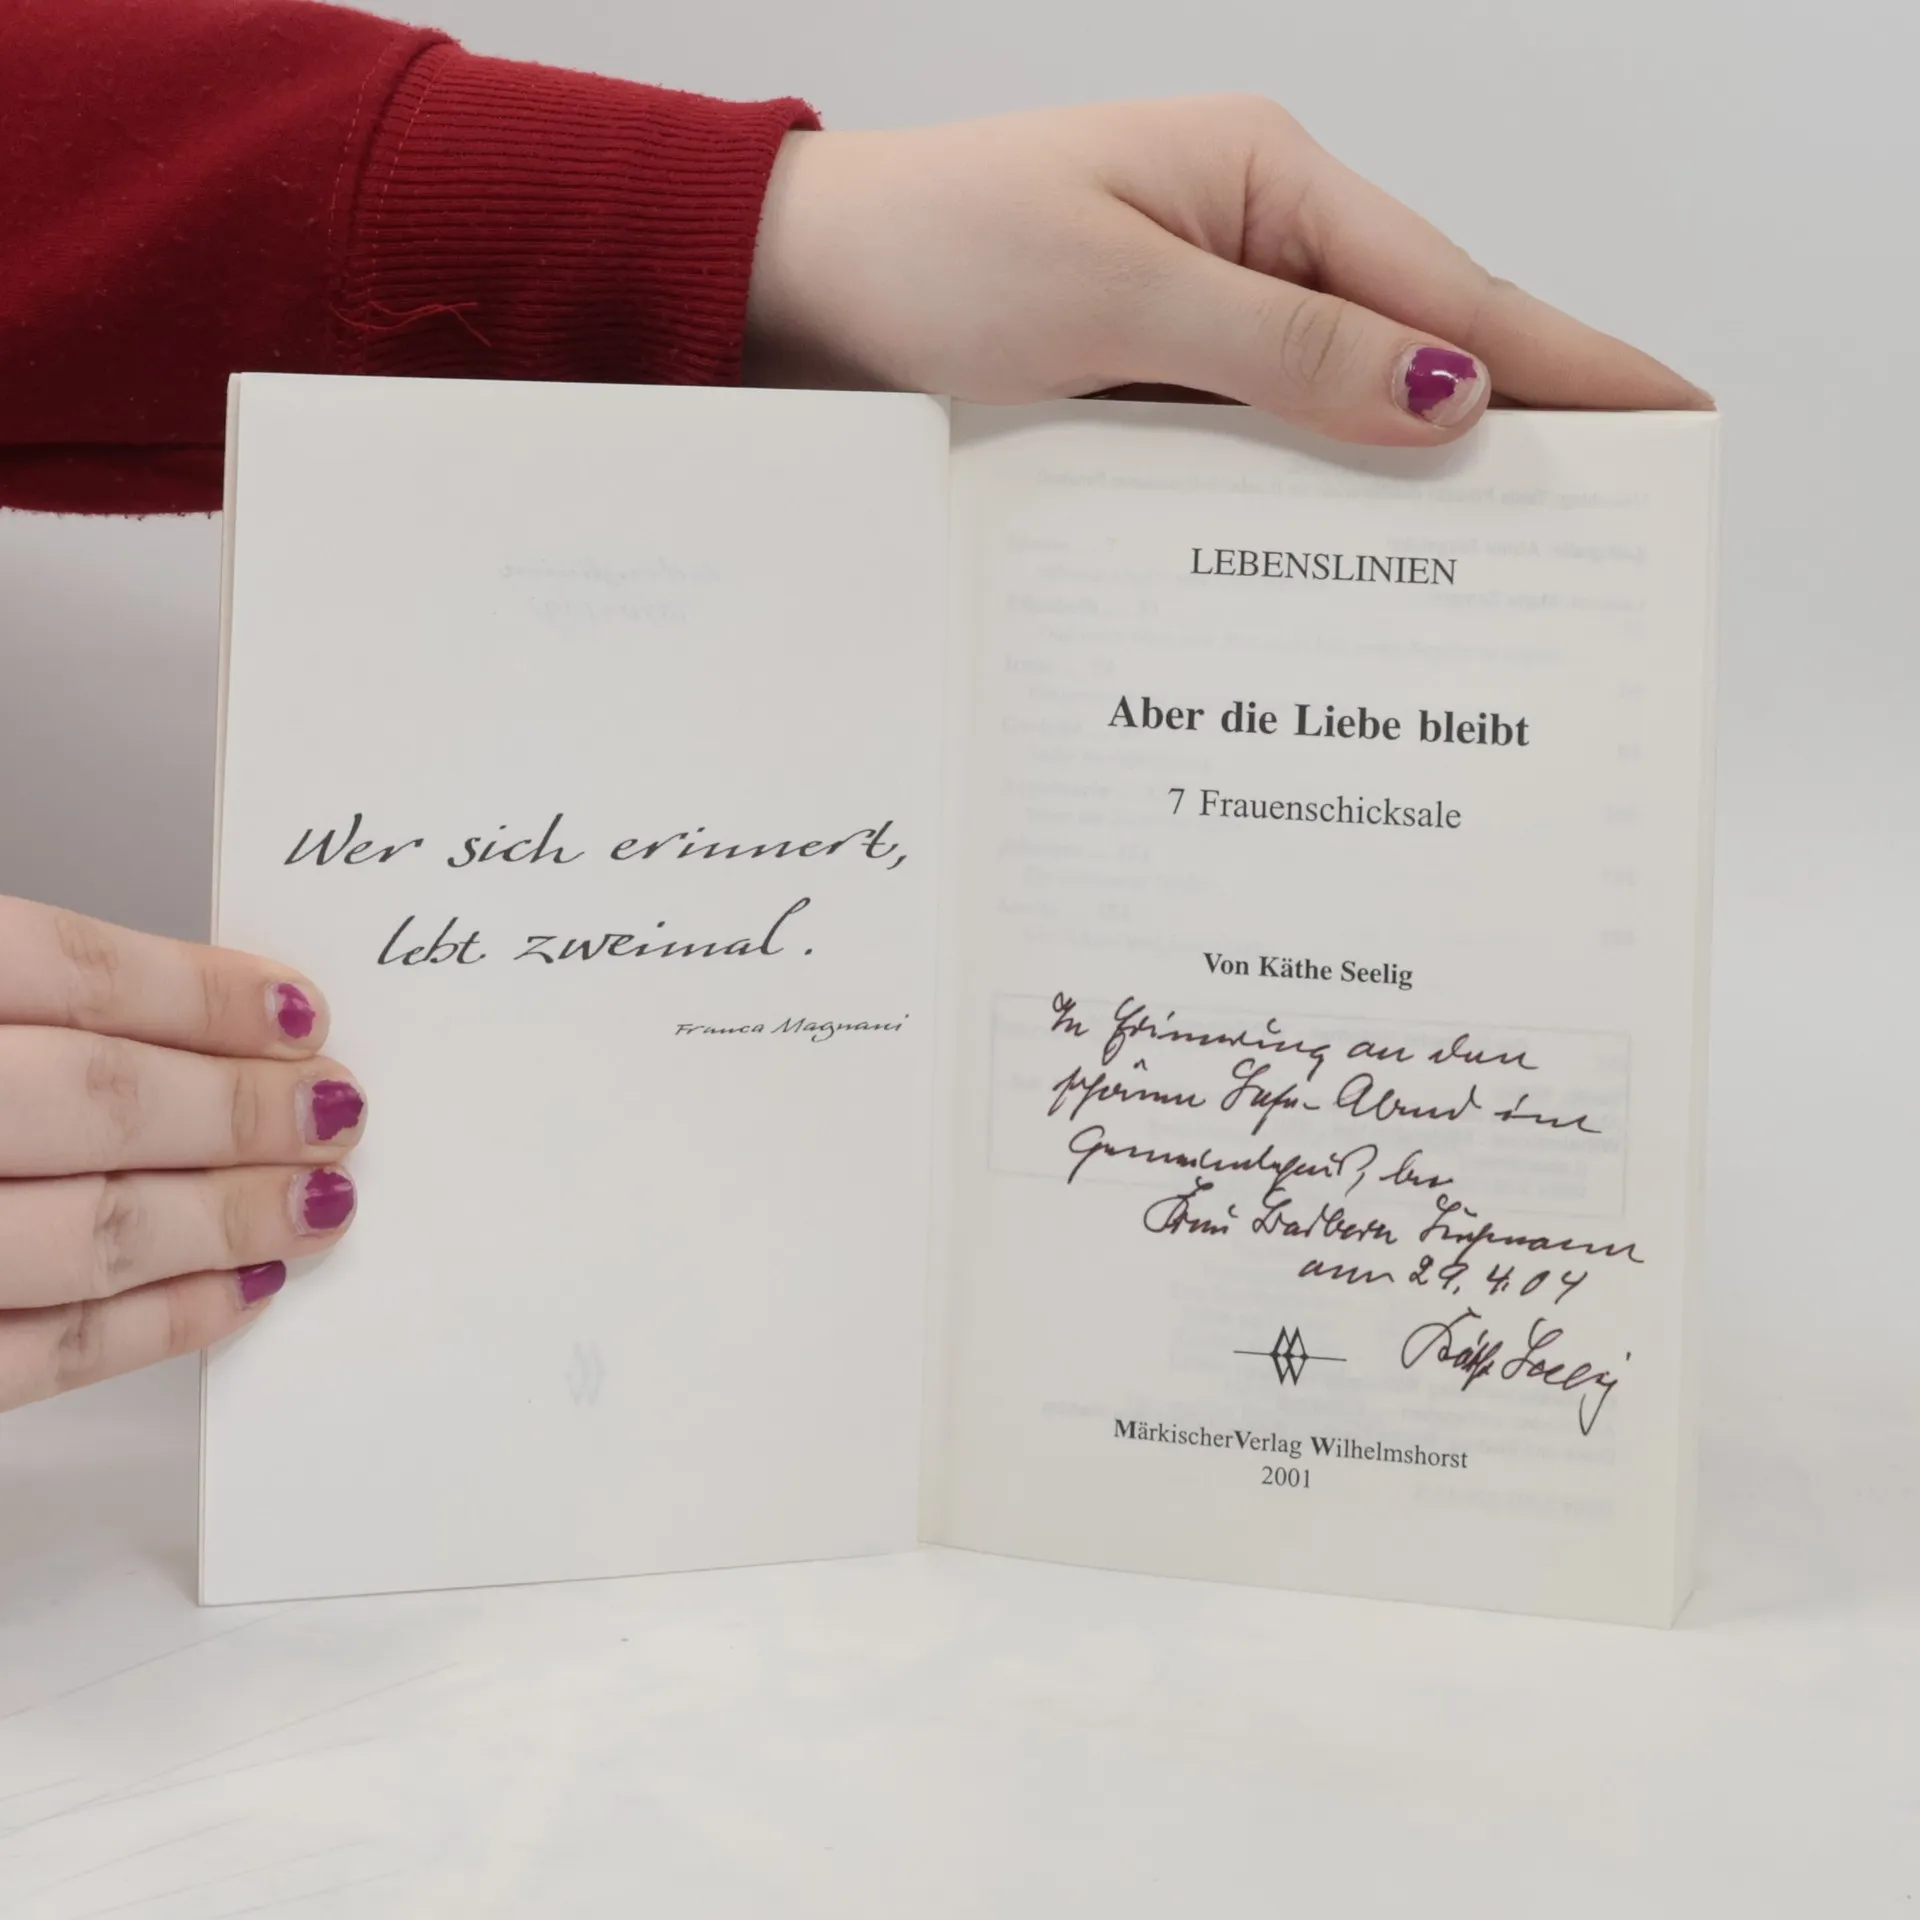 Wer sich erinnert,
lebt zweimal.
Franca Magnani
LEBENSLINIEN
Aber die Liebe bleibt
7 Frauenschicksale
Von Käthe Seelig
In Erinnerung an den
schönen Lese-Abend im
Gemeindehaus, bei
Frau Barbara
am 29.4.04
Käthe Seelig
MärkischerVerlag Wilhelmshorst
2001